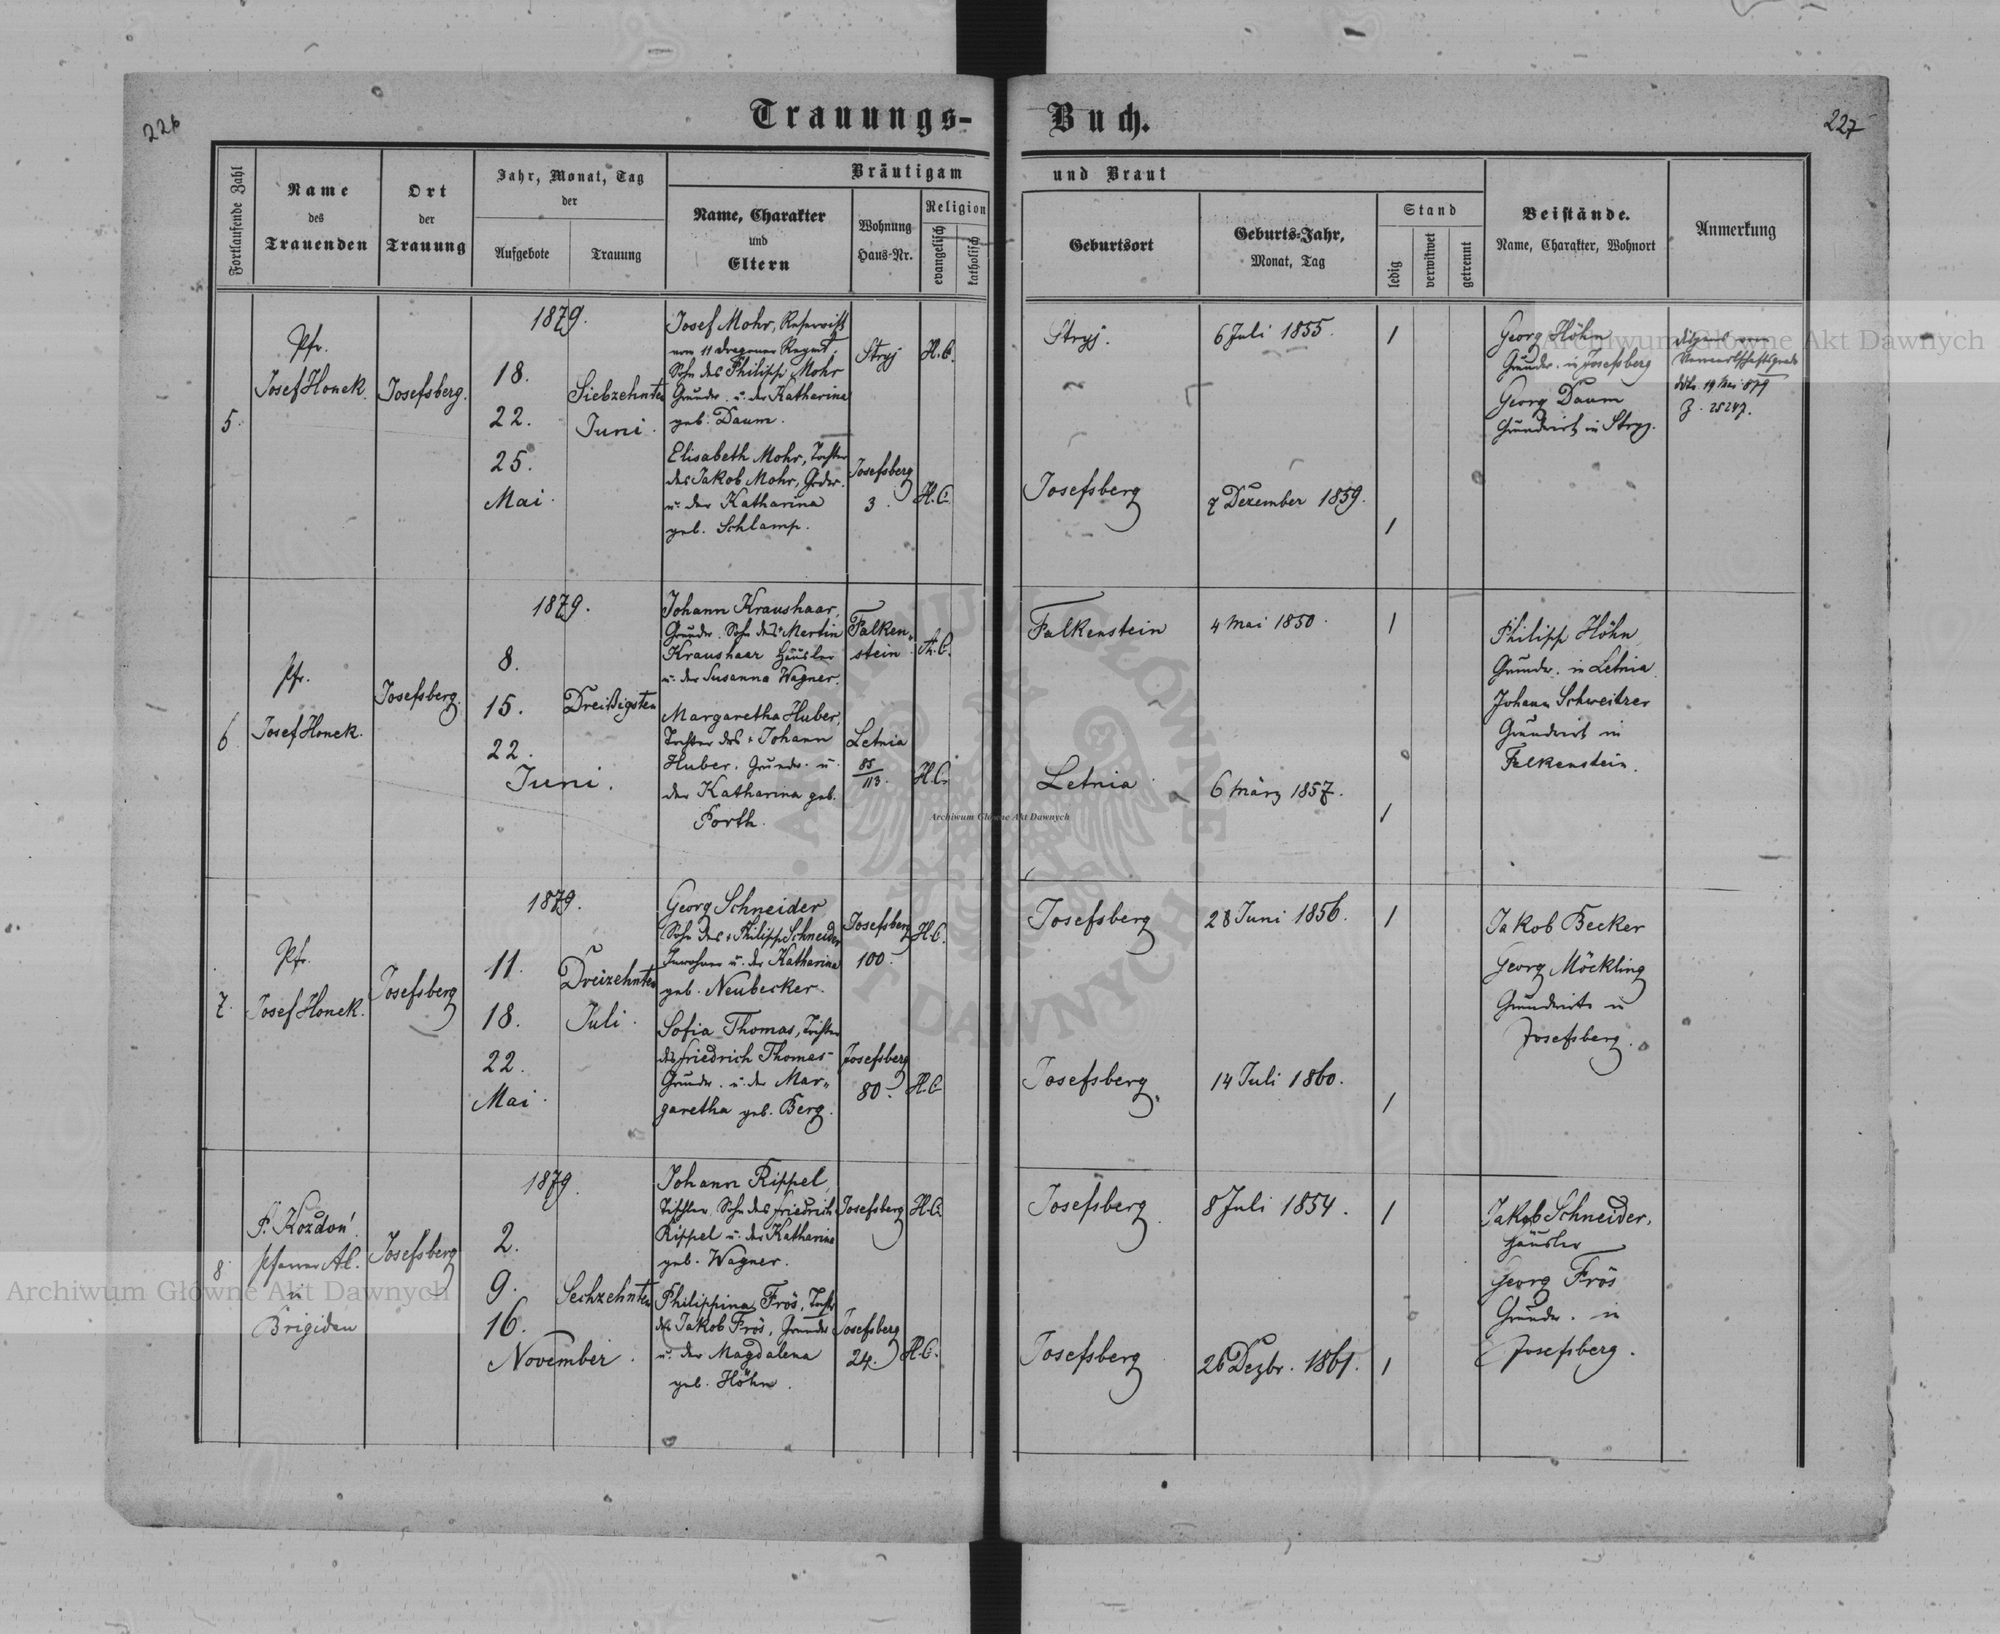 226
Trauungs-
Buch.
227
Fortlaufende Zahl
Name
des
Trauenden
Ort
der
Trauung
Jahr, Monat, Tag
der
Aufgebote
Trauung
Bräutigam
und Braut
Name, Charakter
und
Eltern
Wohnung
Haus-Nr.
Religion
evangelisch
katholisch
Geburtsort
Geburts-Jahr,
Monat, Tag
Stand
ledig
verwitwet
getrennt
Beistände.
Name, Charakter, Wohnort
Anmerkung
5.
Pfr.
Josef Honek.
Josefsberg.
1879.
18.
22.
25.
Mai.
Siebzehnten
Juni.
Josef Mohr, Reservist
vom 11 Dragoner Regmt,
Sohn des Philipp Mohr
Grundw. u. der Katharina
geb. Daum.
Stryj
H.C.
Stryj.
6 Juli 1855.
1
Elisabeth Mohr, Tochter
des Jakob Mohr, Grdw.
u. der Katharina
geb. Schlamp.
Josefsberg
3.
H.C.
Josefsberg
7 Dezember 1859.
1
Georg Höhn
Grundw. in Josefsberg
Georg Daum
Grundwirt in Stryj.
19 Mai 879
Z. 25247.
6
Pfr.
Josef Honek.
Josefsberg.
1879.
8.
15.
22.
Juni.
Dreißigsten
Johann Kraushaar,
Grundw. Sohn des Martin
Kraushaar Häusler
u. der Susanna Wagner.
Falken-
stein
A.C.
Falkenstein
4 Mai 1850.
1
Margaretha Huber,
Tochter des + Johann
Huber, Grundw. u.
der Katharina geb.
Porth.
Letnia
85
113.
H.C.
Letnia
6 März 1857.
1
Philipp Höhn
Grundw. in Letnia.
Johann Schweitzer
Grundwirt in
Falkenstein.
7.
Pfr.
Josef Honek.
Josefsberg
1879.
11.
18.
22.
Mai.
Dreizehnten
Juli.
Georg Schneider
Sohn des + Philipp Schneider
Inwohner u. der Katharina
geb. Neubecker.
Josefsberg
100.
H.C.
Josefsberg
28 Juni 1856.
1
Sofia Thomas, Tochter
des Friedrich Thomas
Grundw. u. der Mar-
garetha geb. Berg.
Josefsberg
80.
H.C.
Josefsberg.
14 Juli 1860.
1
Jakob Becker
Georg Möckling
Grundwirte in
Josefsberg.
8
F. Kozdoń
Pfarrer A.C.
in
Brigidau
Josefsberg
1879.
2.
9.
16.
November.
Sechzehnten
Johann Rippel,
Tischler, Sohn des Friedrich
Rippel u. der Katharina
geb. Wagner.
Josefsberg
H.C.
Josefsberg
8 Juli 1854.
1
Philippina Frös, Tochter
des Jakob Frös, Grundw
u. der Magdalena
geb. Höhn.
Josefsberg
24.
H.C.
Josefsberg
26 Dezbr. 1861.
1
Jakob Schneider,
Häusler
Georg Frös
Grundw. in
Josefsberg.
Archiwum Główne Akt Dawnych
Archiwum Główne Akt Dawnych
Archiwum Główne Akt Dawnych
ARCHIWUM GŁÓWNE AKT DAWNYCH